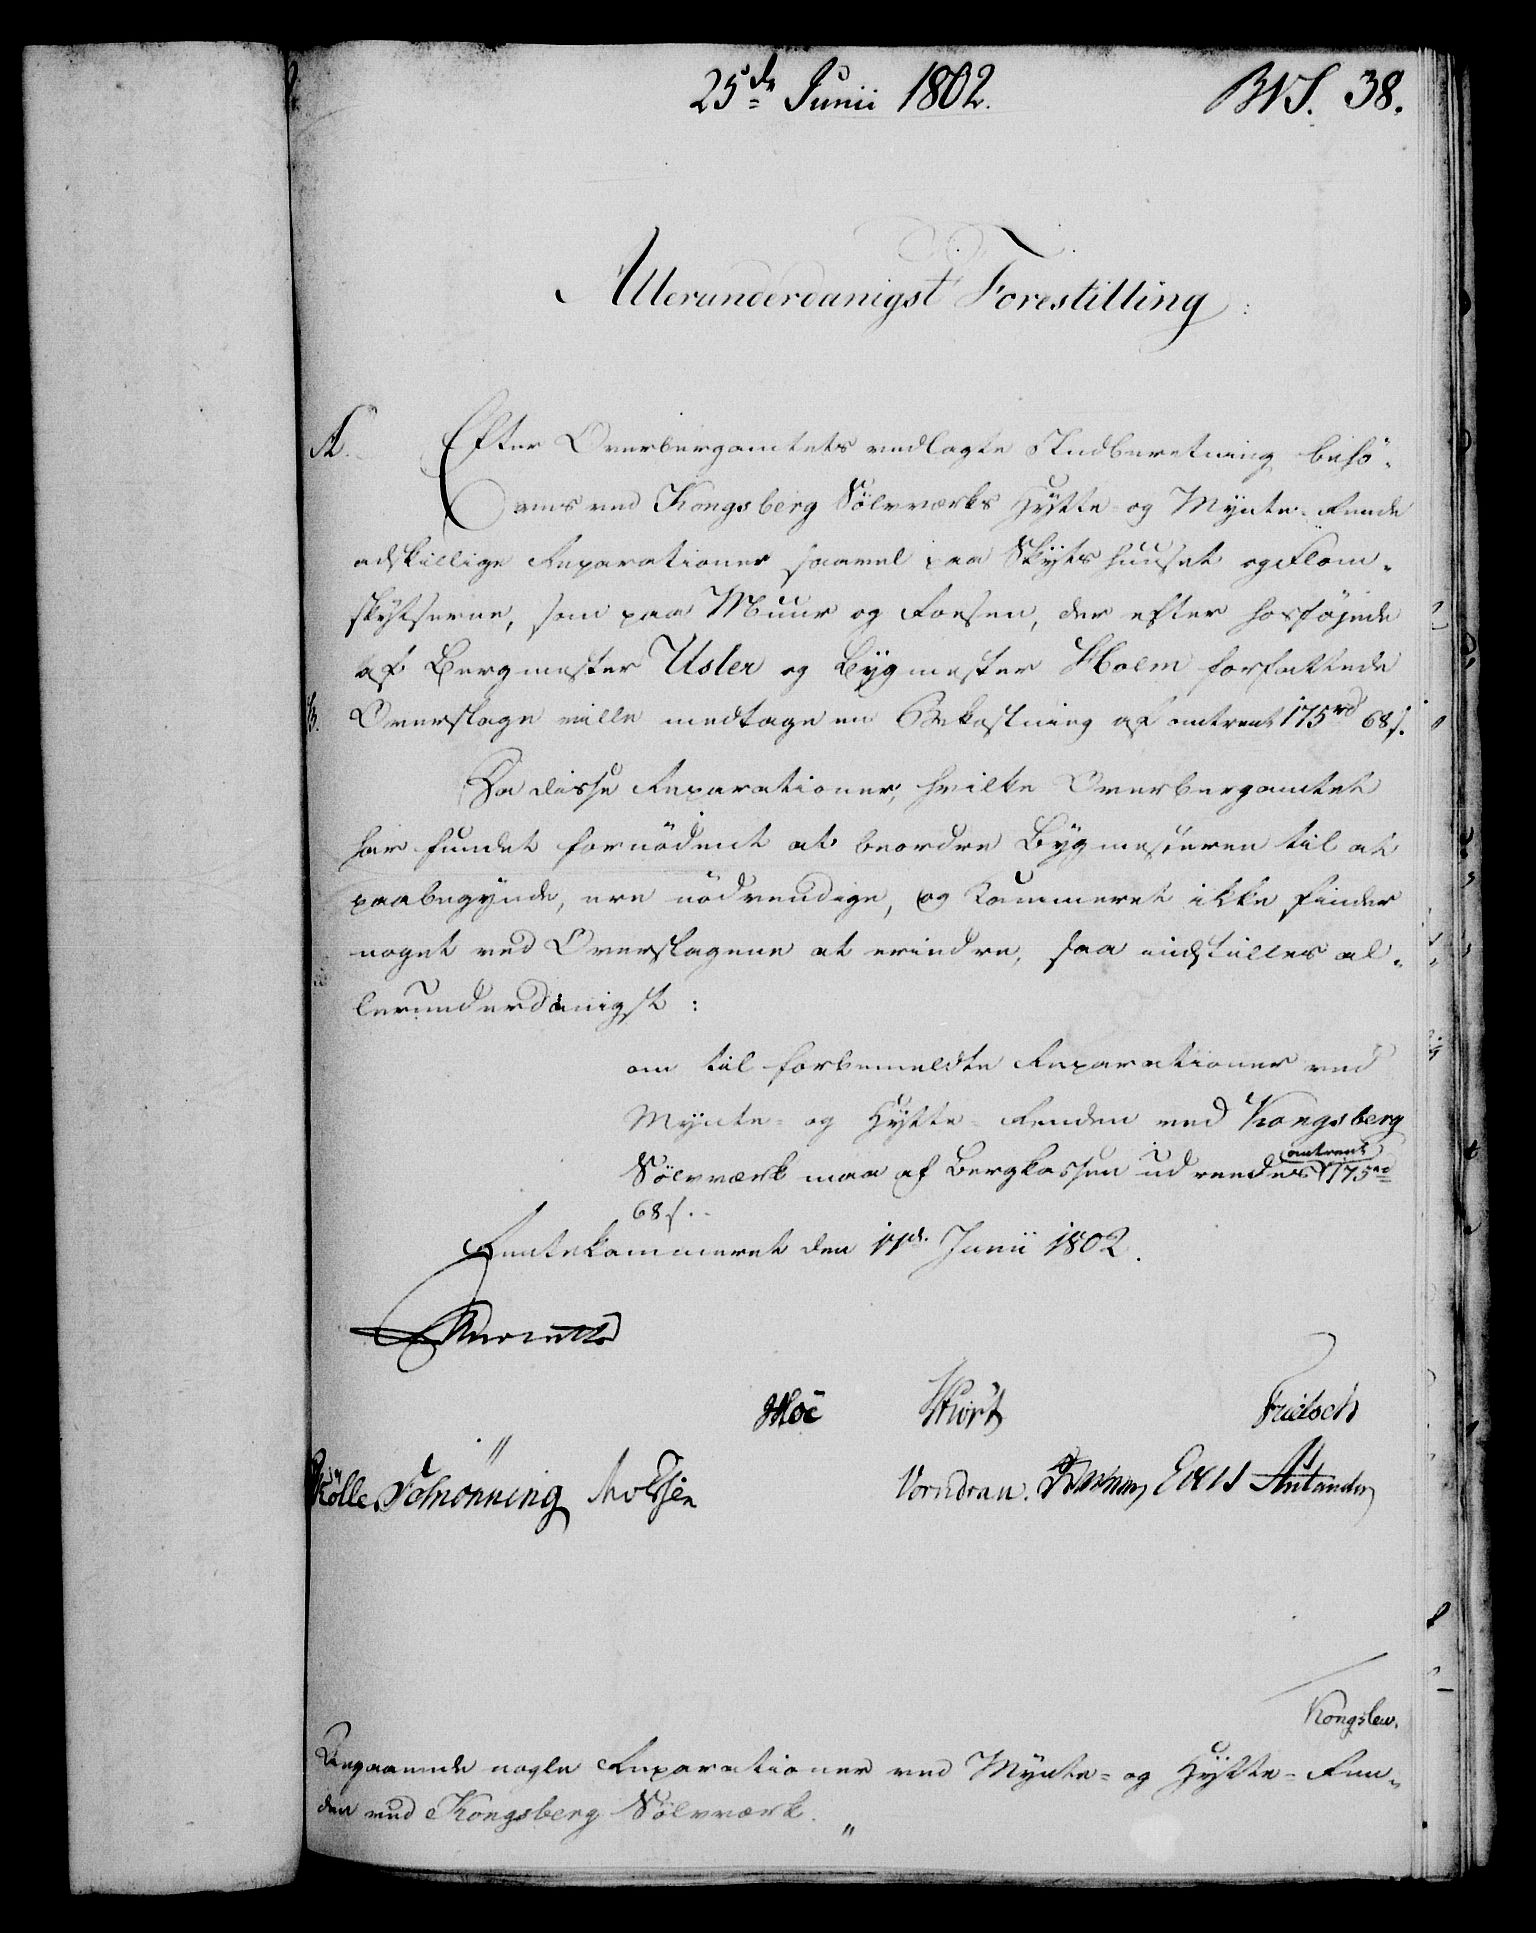 25de Junii 1802. BVS. 38.
Allerunderdanigst Forestilling:
A. Efter Overbergamtets vedlagte Indberetning behø-
ves ved Kongsberg Sölvværks Hytte- og Mynte-Rende
adskillige Reparationer saavel paa Skythuuset og Flom-
skytserne, som paa Muur og Forsen, der efter hosföjede
af Bergmester Usler og Bygmester Holm forfattede
B. Overslage ville medtage en Bekostning af omtrent 175 rd 68 s.
Da disse Reparationer, hvilke Overbergamtet
har fundet fornödent at beordre Bygmesteren til at
paabegynde, ere nödvendige, og Kammeret ikke finder
noget ved Overslagene at erindre, saa indstilles al-
lerunderdanigst:
om til forbemeldte Reparationer ved
Mynte- og Hytte-Renden ved Kongsberg
Sölvværk maa af Bergkassen udredes omtrent 175 rd
68 s.
Rentekammeret den 11d. Junii 1802.
Reventlow
Moe Wiort Frielsch
Kölle. Schönning Vorndran.
Kongslew.
Angaaende nogle Reparationer ved Mynte- og Hytte-Ren-
den ved Kongsberg Sölvværk.